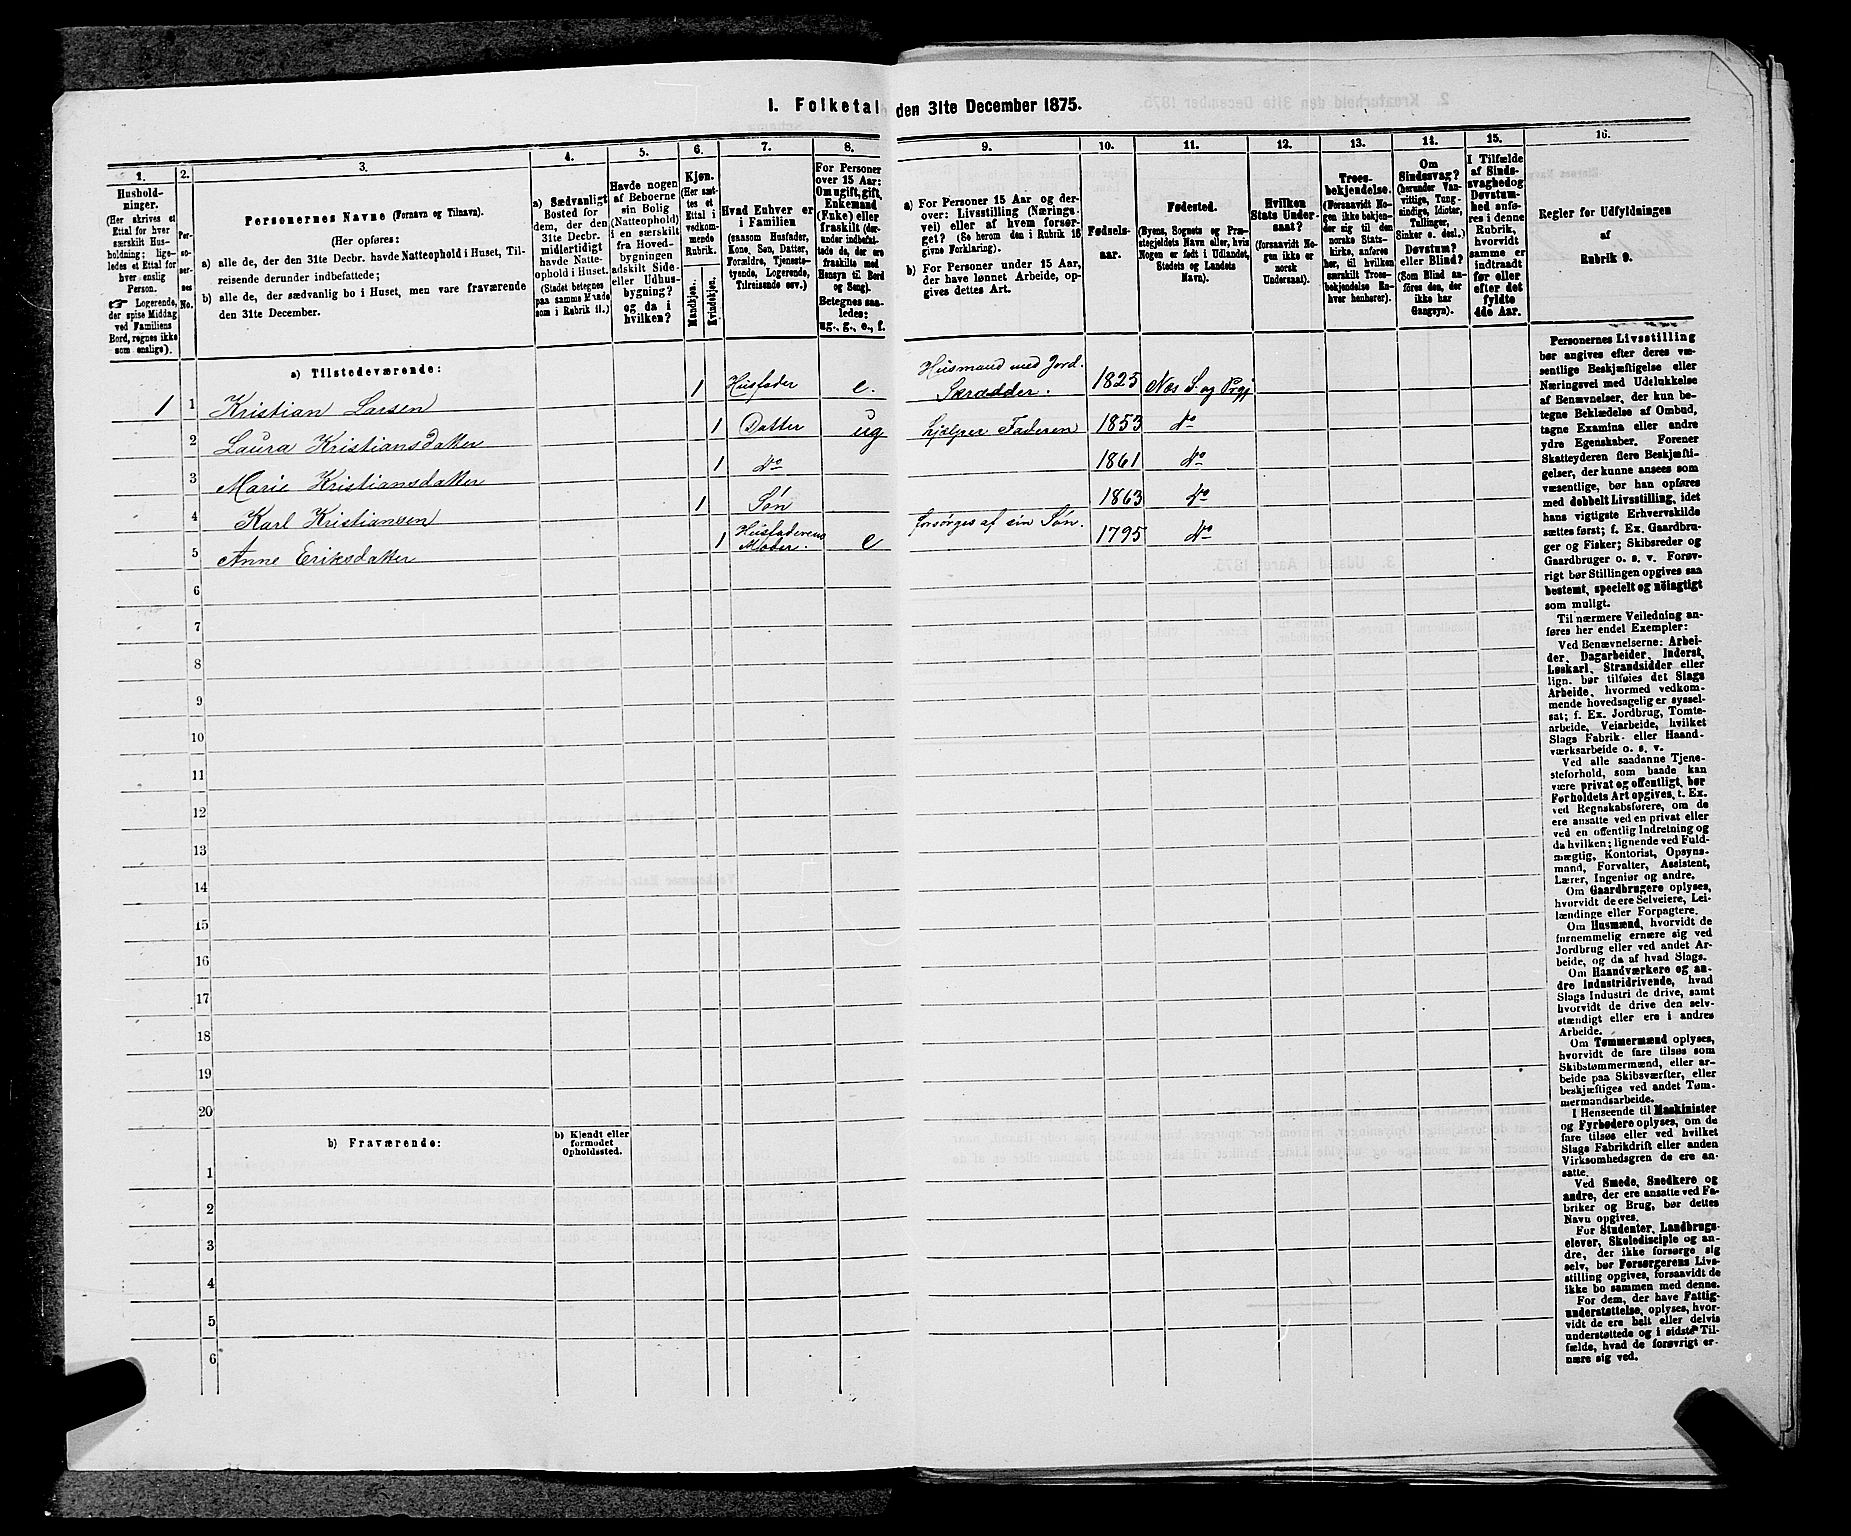 1. Folketal den 31te December 1875.
1.
2.
3.
4.
5.
6.
7.
8.
9.
10.
11.
12.
13.
14.
15.
16.
Hushold-
ninger.
(Her skrives et
Ettal for hver
særskilt Hus-
holdning; lige-
ledes et Ettal for
hver enslig
Person.
☞ Logerende,
der spise Middag
ved Familiens
Bord, regnes ikke
som enslige).
Per-
so-
ner-
nes
No.
Personernes Navne (Fornavn og Tilnavn).
(Her opføres:
a) alle de, der den 31te Decbr. havde Natteophold i Huset, Til-
reisende derunder indbefattede;
b) alle de, der sædvanlig bo i Huset, men vare fraværende
den 31te December.
a) Sædvanligt
Bosted for
dem, der den
31te Decbr.
midlertidigt
havde Natte-
ophold i Huset.
(Stedet betegnes
paa samme Maade
som i Rubrik 11.)
Havde nogen
af Beboerne
sin Bolig
(Natteophold)
i en særskilt
fra Hoved-
bygningen
adskilt Side-
eller Udhus-
bygning?
og da i
hvilken?
Kjøn.
(Her sæt-
tes et
Ettal i
vedkom-
mende
Rubrik.
Mandkjøn.
Kvindekjøn.
Hvad Enhver er
i Familien
(saasom Husfader,
Kone, Søn, Datter,
Forældre, Tjeneste-
tyende, Logerende,
Tilreisende osv.)
For Personer
over 15 Aar:
Om ugift, gift,
Enkemand
(Enke) eller
fraskilt (der-
under indbefat-
tede de, der ere
fraskilte med
Hensyn til Bord
og Seng).
Betegnes saa-
ledes:
ug., g., e., f.
a) For Personer 15 Aar og der-
over: Livsstilling (Nærings-
vei) eller af hvem forsør-
get? (Se herom den i Rubrik 16
givne Forklaring).
b) For Personer under 15 Aar,
der have lønnet Arbeide, op-
gives dettes Art.
Fødsels-
aar.
Fødested.
(Byens, Sognets og Præ-
stegjeldets Navn eller, hvis
Nogen er født i Udlandet,
Stedets og Landets
Navn).
Hvilken
Stats Under-
saat?
(forsaavidt No-
gen ikke er
norsk
Undersaat).
Troes-
bekjendelse.
(Forsaavidt No-
gen ikke bekjen-
der sig til den
norske Stats-
kirke, anføres
her, til hvilken
særskilt Troes-
bekjendelse En-
hver henhører).
Om
Sindssvag?
(herunder Van-
vittige, Tung-
sindige, Idioter,
Tullinger,
Sinker o. desl.)
Døvstum?
eller Blind?
(Som Blind an-
føres den, der
ikke har
Gangsyn).
I Tilfælde
af Sinds-
svaghed og
Døvstum-
hed anfø-
res i denne
Rubrik,
hvorvidt
samme er
indtraadt
før eller
efter det
fyldte
4de Aar.
Regler for Udfyldningen
af
Rubrik 9.
a) Tilstedeværende:
1 1 Kristian Larsen 1 Husfader e. Husmand med Jord.
Skrædder. 1825 Næs S. og Prgj
2 Laura Kristiansdatter 1 Datter ug hjælper Faderen 1853 do
3 Marie Kristiansdatter 1 do 1861 do
4 Karl Kristiansen 1 Søn 1863 do
5 Anne Eriksdatter 1 Husfaderens
Moder. e forsørges af sin Søn. 1795 do
6
7
8
9
10
11
12
13
14
15
16
17
18
19
20
b) Fraværende:
b) Kjendt eller
formodet
Opholdssted.
1
2
3
4
5
6
Personernes Livsstilling
bør angives efter deres væ-
sentlige Beskjæftigelse eller
Næringsvei med Udelukkelse
af Benævnelser, der kun be-
tegne Beklædelse af Ombud,
tagne Examina eller andre
ydre Egenskaber. Forener
Skatteyderen flere Beskjæfti-
gelser, der kunne ansees som
væsentlige, bør han opføres
med dobbelt Livsstilling, idet
hans vigtigste Erhvervskilde
sættes først; f. Ex. Gaardbru-
ger og Fisker; Skibsreder og
Gaardbruger o. s. v. Forøv-
rigt bør Stillingen opgives saa
bestemt, specielt og nøiagtigt
som muligt.
Til nærmere Veiledning an-
føres her endel Exempler:
Ved Benævnelserne: Arbei-
der, Dagarbeider, Inderst,
Løskarl, Strandsidder eller
lign. bør tilføies det Slags
Arbeide, hvormed vedkom-
mende hovedsagelig er syssel-
sat; f. Ex. Jordbrug, Tomte-
arbeide, Veiarbeide, hvilket
Slags Fabrik- eller Haand-
værksarbeide o. s. v.
Ved alle saadanne Tjene-
steforhold, som baade kan
være privat og offentligt, bør
Forholdets Art opgives, t. Ex.
ved Regnskabsførere, om de
ere ansatte ved en privat eller
ved en offentlig Indretning og
da hvilken; lignende ved Fuld-
mægtig, Kontorist, Opsyns-
mand, Forvalter, Assistent,
Lærer, Ingeniør og andre.
Om Gaardbrugere oplyses,
hvorvidt de ere Selveiere, Lei-
lændinge eller Forpagtere.
Om Husmænd, hvorvidt de
fornemmelig ernære sig ved
Jordbrug eller ved andet Ar-
beide, og da af hvad Slags.
Om Haandværkere og an-
dre Industridrivende, hvad
Slags Industri de drive, samt
hvorvidt de drive den selv-
stændigt eller ere i andres
Arbeide.
Om Tømmermænd oplyses,
hvorvidt de fare tilsøs som
Skibstømmermænd, eller ar-
beide paa Skibsværfter, eller
beskjæftiges ved andet Tøm-
mermandsarbeide.
I Henseende til Maskinister
og Fyrbødere oplyses, om de
fare tilsøs eller ved hvilket
Slags Fabrikdrift eller anden
Virksomhedsgren de ere an-
satte.
Ved Smede, Snedkere og
andre, der ere ansatte ved Fa-
briker og Brug, bør dettes
Navn opgives.
For Studenter, Landbrugs-
elever, Skoledisciple og an-
dre, der ikke forsørge sig
selv, bør Forsørgerens Livs-
stilling opgives, forsaavidt de
ikke bo sammen med denne.
For dem, der have Fattig-
understøttelse, oplyses, hvor-
vidt de ere helt eller delvis
understøttede og i sidste Til-
fælde, hvad de forøvrigt er-
nære sig ved.